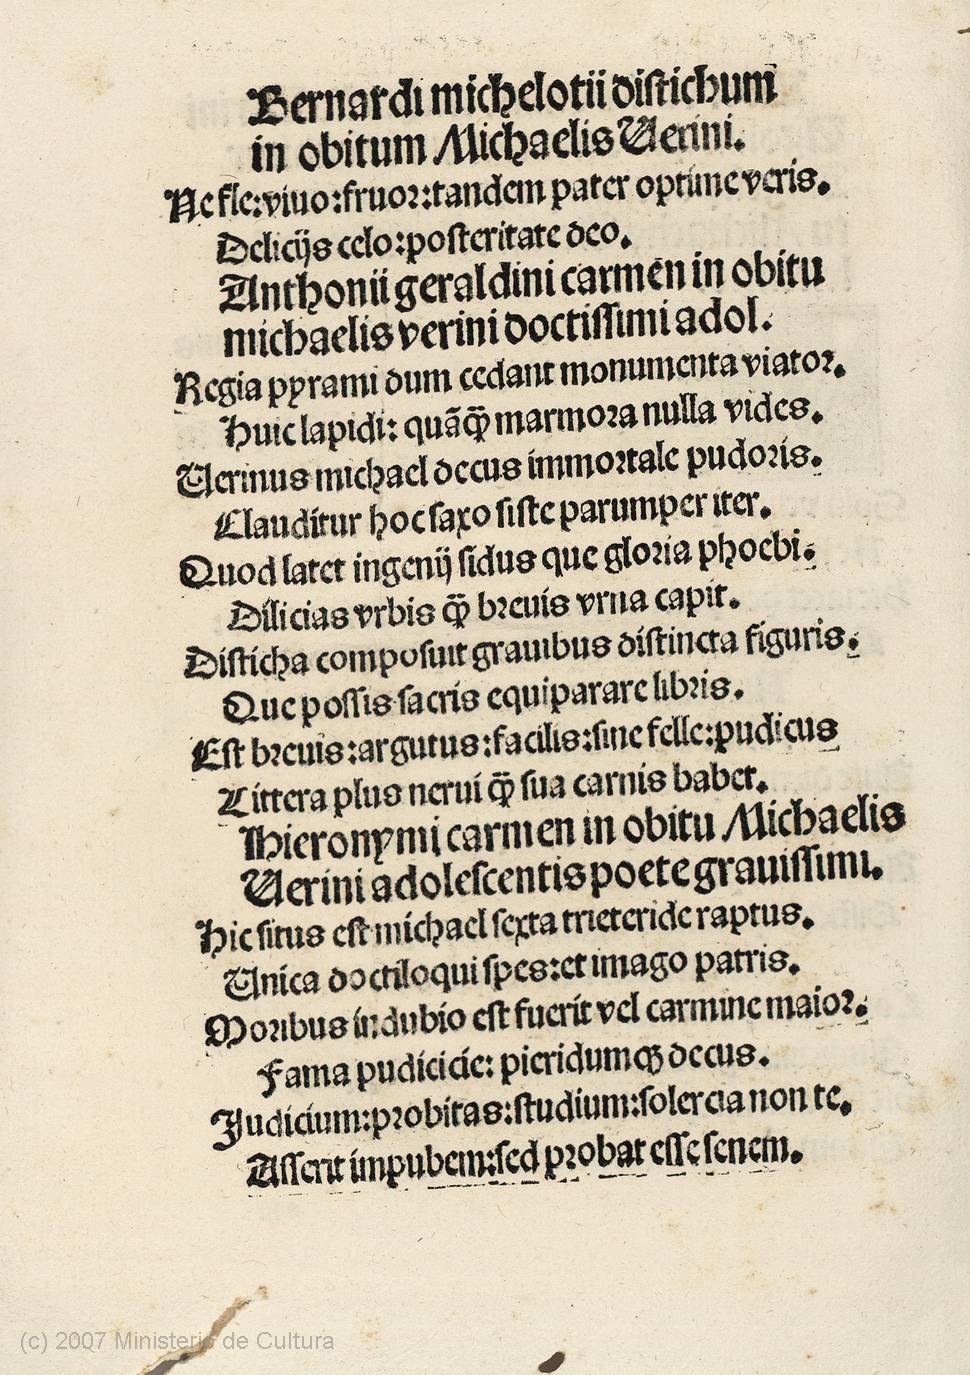 Bernardi michelotii distichum
in obitum Michaelis Verini.
Ne fle:viuo:fruor:tandem pater optime veris.
Delicijs celo:posteritate deo.
Anthonii geraldini carmen in obitu
michaelis verini doctissimi adol.
Regia pyrami dum cedant monumenta viator.
Huic lapidi: quãꝙ̃ marmora nulla vides.
Verinus michael decus immortale pudoris.
Clauditur hoc saxo siste parumper iter.
Quod latet ingenij sidus que gloria phoebi.
Dilicias vrbis ꝙ̃ breuis vrna capit.
Disticha composuit grauibus distincta figuris.
Que possis sacris equiparare libris.
Est breuis:argutus:facilis:sine felle:pudicus
Littera plus nerui ꝙ̃ sua carnis habet.
Hieronymi carmen in obitu Michaelis
Verini adolescentis poete grauissimi.
Hic situs est michael sexta trieteride raptus.
Unica doctiloqui spes:et imago patris.
Moribus in dubio est fuerit vel carmine maior.
Fama pudicicie: pieridumqꝫ decus.
Judicium:probitas:studium:solercia non te.
Asserit impubem:sed probat esse senem.
(c) 2007 Ministerio de Cultura